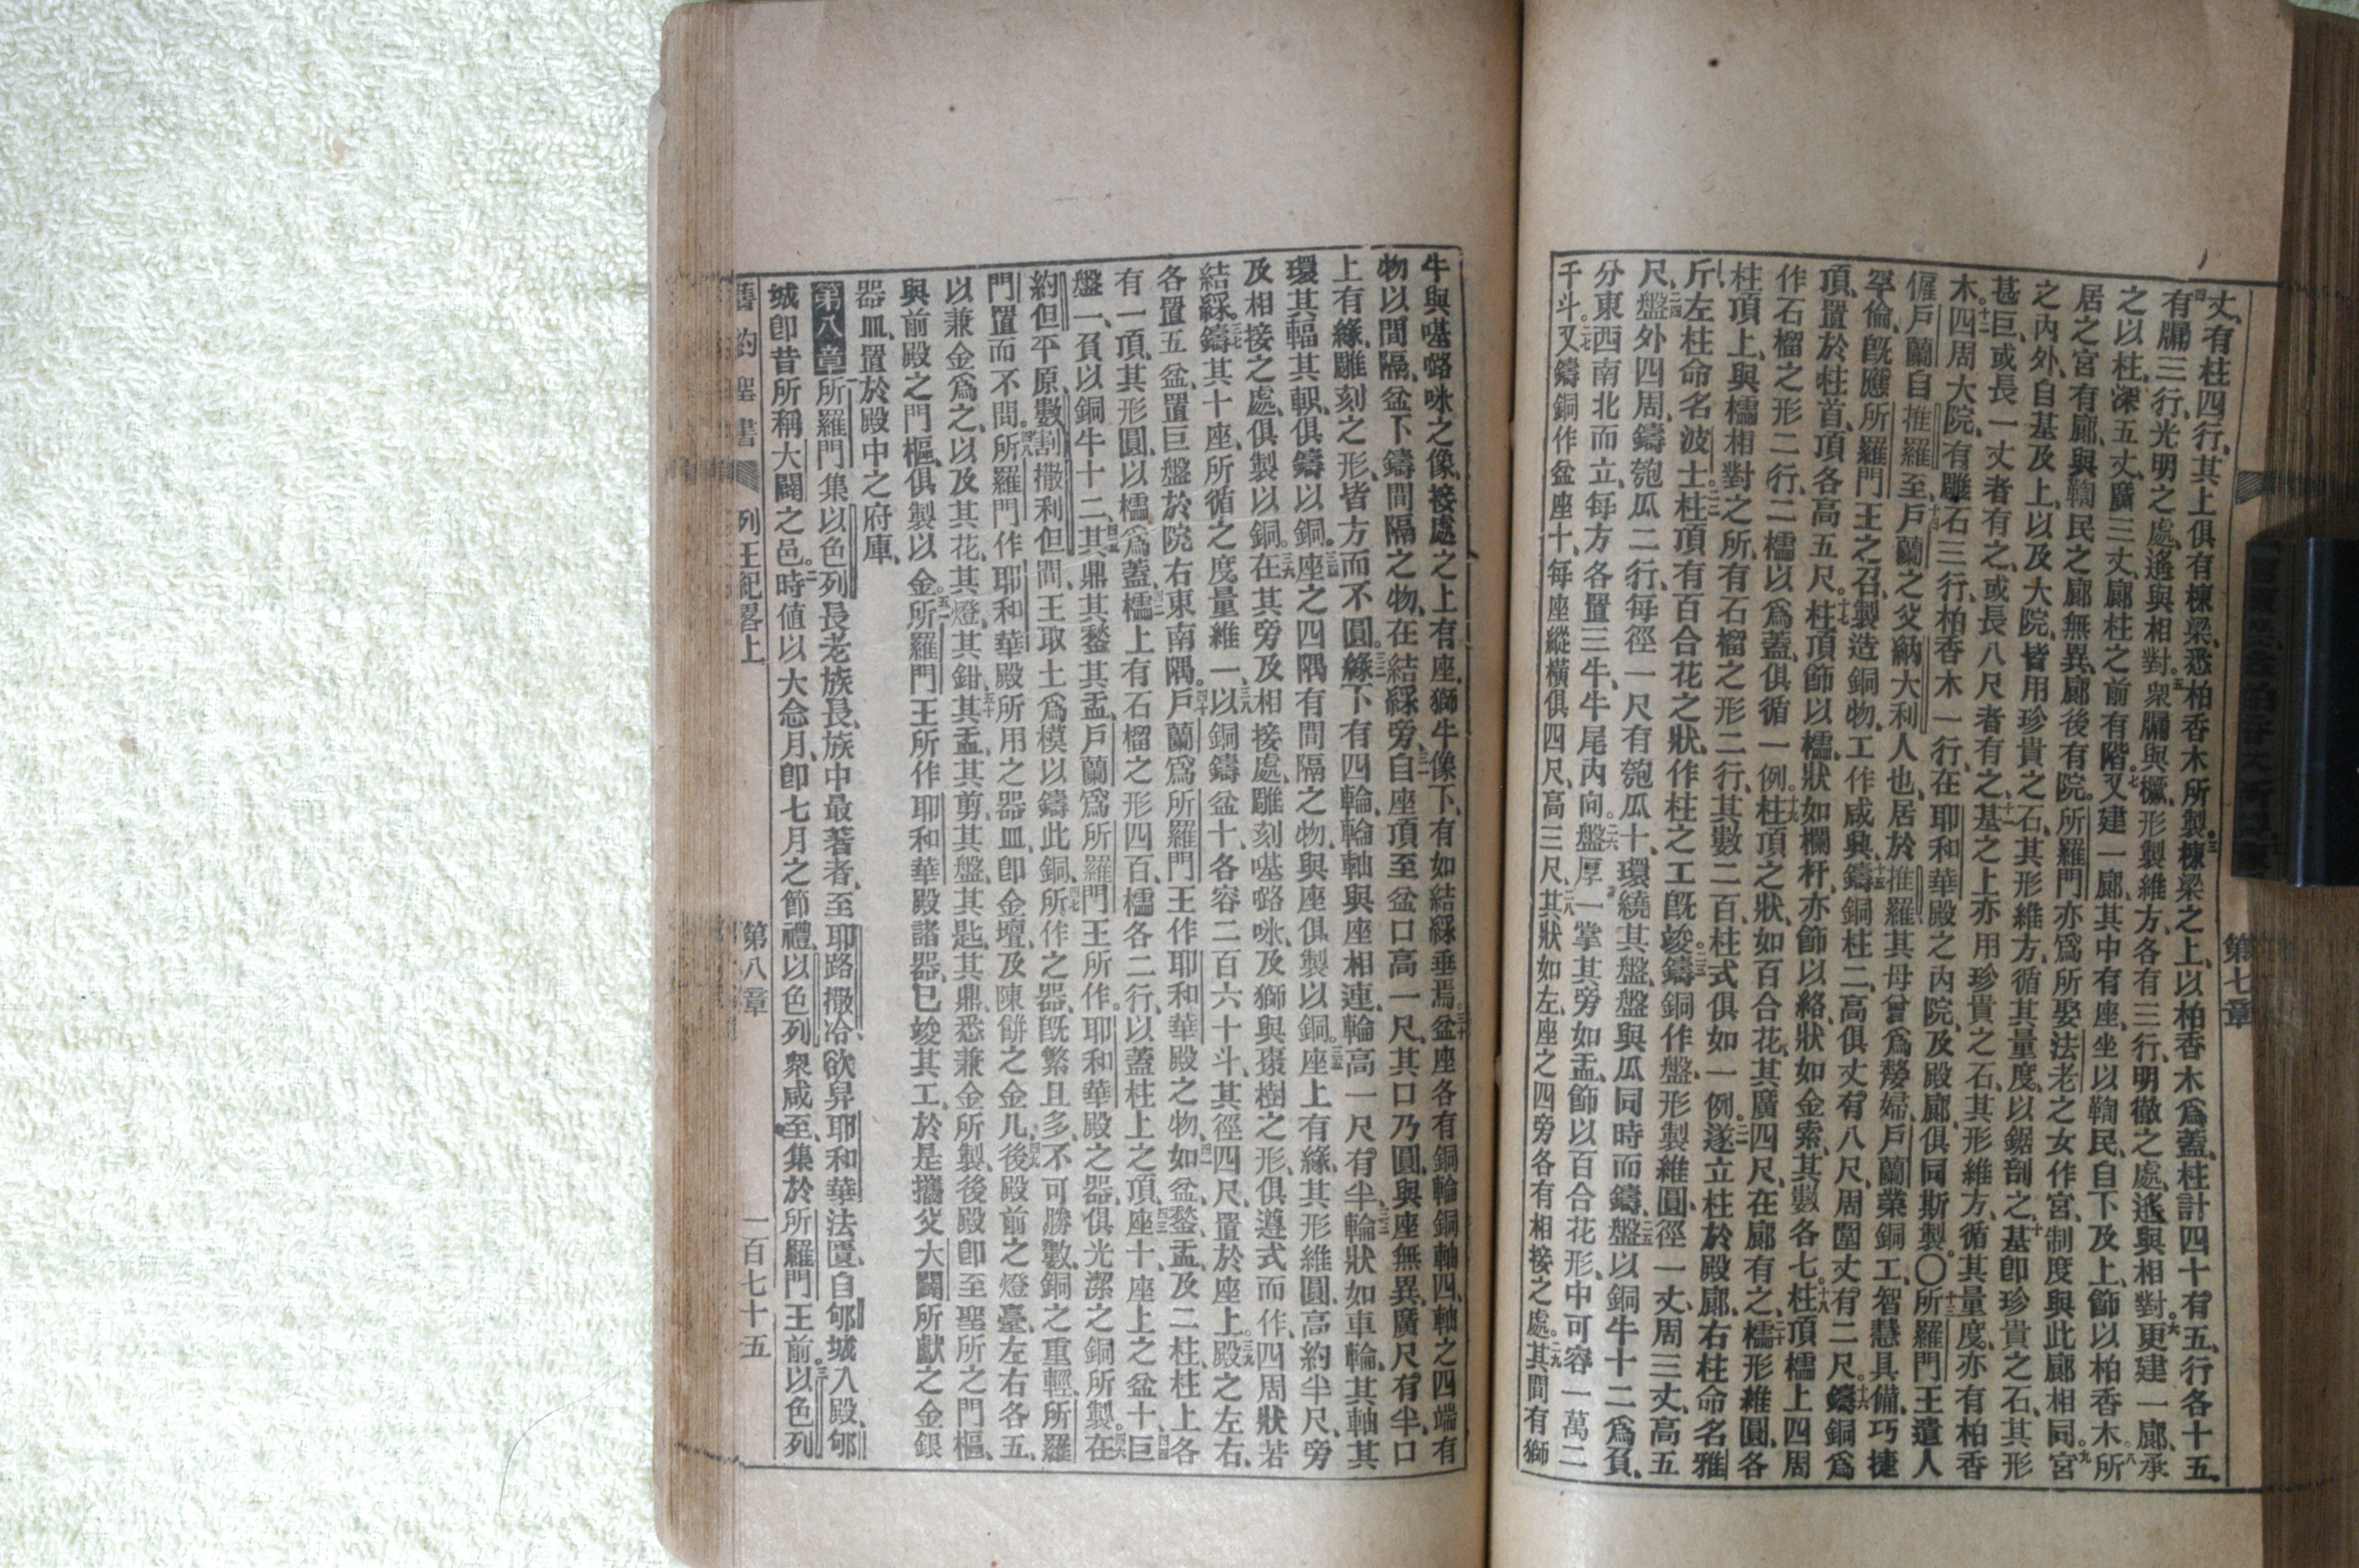 丈、有柱四行、其上俱有棟梁、悉柏香木所製、三棟梁之上、以柏香木爲蓋、柱計四十有五、行各十五、
四有牖三行、光明之處、遙與相對。五衆牖與橛、形製維方、各有三行、明徹之處、遙與相對。六更建一廊、承
之以柱、深五丈、廣三丈、廊柱之前有階。七又建一廊、其中有座、坐以鞫民、自下及上、節以柏香木、八所
居之宮有廊、與鞫民之廊無異、廊後有院。所羅門亦爲所娶法老之女作宮、制度與此廊相同。九宮
之內外、自基及上、以及大院、皆用珍貴之石、其形維方、循其量度、以鋸剖之、十基卽珍貴之石、其形
甚巨、或長一丈者有之、或長八尺者有之、十一基之上亦用珍貴之石、其形維方、循其量度、亦有柏香
木。十二四周大院、有雕石三行、柏香木一行、在耶和華殿之內院、及殿廊、俱同斯製。〇十三所羅門王遣人
僱戶蘭自推羅至、十四戶蘭之父、納大利人也、居於推羅、其母曾爲嫠婦、戶蘭業銅工、智慧具備、巧捷
罕倫、旣應所羅門王之召、製造銅物、工作咸興、十五鑄銅柱二、高俱丈有八尺、周圍丈有二尺。十六鑄銅爲
頂、置於柱首、頂各高五尺。十七柱頂節以櫺、狀如欄杆、亦節以絡、狀如金索、其數各七。十八柱頂櫺上四周
作石榴之形二行、二櫺以爲蓋、俱循一例。十九柱頂之狀、如百合花、其廣四尺、在廊有之、二十櫺形維圓、各
柱頂上、與櫺相對之所、有石榴之形二行、其數二百、柱式俱如一例。二一遂立柱於殿廊、右柱命名雅
斤、左柱命名波士。二二柱頂有百合花之狀、作柱之工旣竣。二三鑄銅作盤、形製維圓、徑一丈、周三丈、高五
尺、二四盤外四周、鑄匏瓜二行、每徑一尺有匏瓜十、環繞其盤、盤與瓜同時而鑄、二五盤以銅牛十二爲負、
分東西南北而立、每方各置三牛、牛尾內向。二六盤厚一掌、其旁如盂、節以百合花形、中可容一萬二
千斗。二七又鑄銅作盆座十、每座縱橫俱四尺、高三尺、二八其狀如左、座之四旁各有相接之處。二九其間有獅
牛與㗳㖫㕲之像、接處之上有座、獅牛像下、有如結綵垂焉。三十盆座各有銅輪銅軸四、軸之四端有
物以間隔、盆下鑄間隔之物、在結綵旁、三一自座頂至盆口高一尺、其口乃圓、與座無異、廣尺有半、口
上有緣、雕刻之形、皆方而不圓。三二緣下有四輪、輪軸與座相連、輪高一尺有半、三三輪狀如車輪、其軸其
環其輻其軹、俱鑄以銅。三四座之四隅有間隔之物、與座俱製以銅。三五座上有緣、其形維圓、高約半尺、旁
及相接之處、俱製以銅。三六在其旁及相接處、雕刻㗳㖫㕲、及獅與棗樹之形、俱遵式而作、四周狀若
結綵。三七鑄其十座、所循之度量維一、三八以銅鑄盆十、各容二百六十斗、其徑四尺、置於座上。三九殿之左右、
各置五盆、置巨盤於院右東南隅。四十戶蘭爲所羅門王作耶和華殿之物、如盆、鍪、盂、四一及二柱、柱上各
有一項、其形圓、以櫺爲蓋、四二櫺上有石榴之形四百、櫺各二行、以蓋柱上之頂、四三座十、座上之盆十、四四巨
盤一、負以銅牛十二、四五其鼎其鍪其盂、戶蘭爲所羅門王所作、耶和華殿之器、俱光潔之銅所製。四六在
約但平原、數割撒利但間、王取土爲模以鑄此銅、四七所作之器、旣繁且多、不可勝數、銅之重輕、所羅
門置而不問。四八所羅門作耶和華殿所用之器皿、卽金壇、及陳餅之金几、四九後殿前之燈臺、左右各五、
以兼金爲之、以及其花、其燈、其鉗、五十其盂、其剪、其盤、其匙、其鼎、悉兼金所製、後殿卽至聖所之門樞、
與前殿之門樞、俱製以金。五一所羅門王所作耶和華殿諸器、已竣其工、於是攜父大闢所獻之金銀
器皿、置於殿中之府庫、
第八章 所羅門集以色列長老族長、族中最著者、至耶路撒冷、欲舁耶和華法匱、自郇城入殿、郇
城卽昔所稱大闢之邑。二時值以大念月、卽七月之節禮、以色列衆咸至、集於所羅門王前。三以色列
舊約聖書 列王紀畧上 第八章 二百七十五
第七章